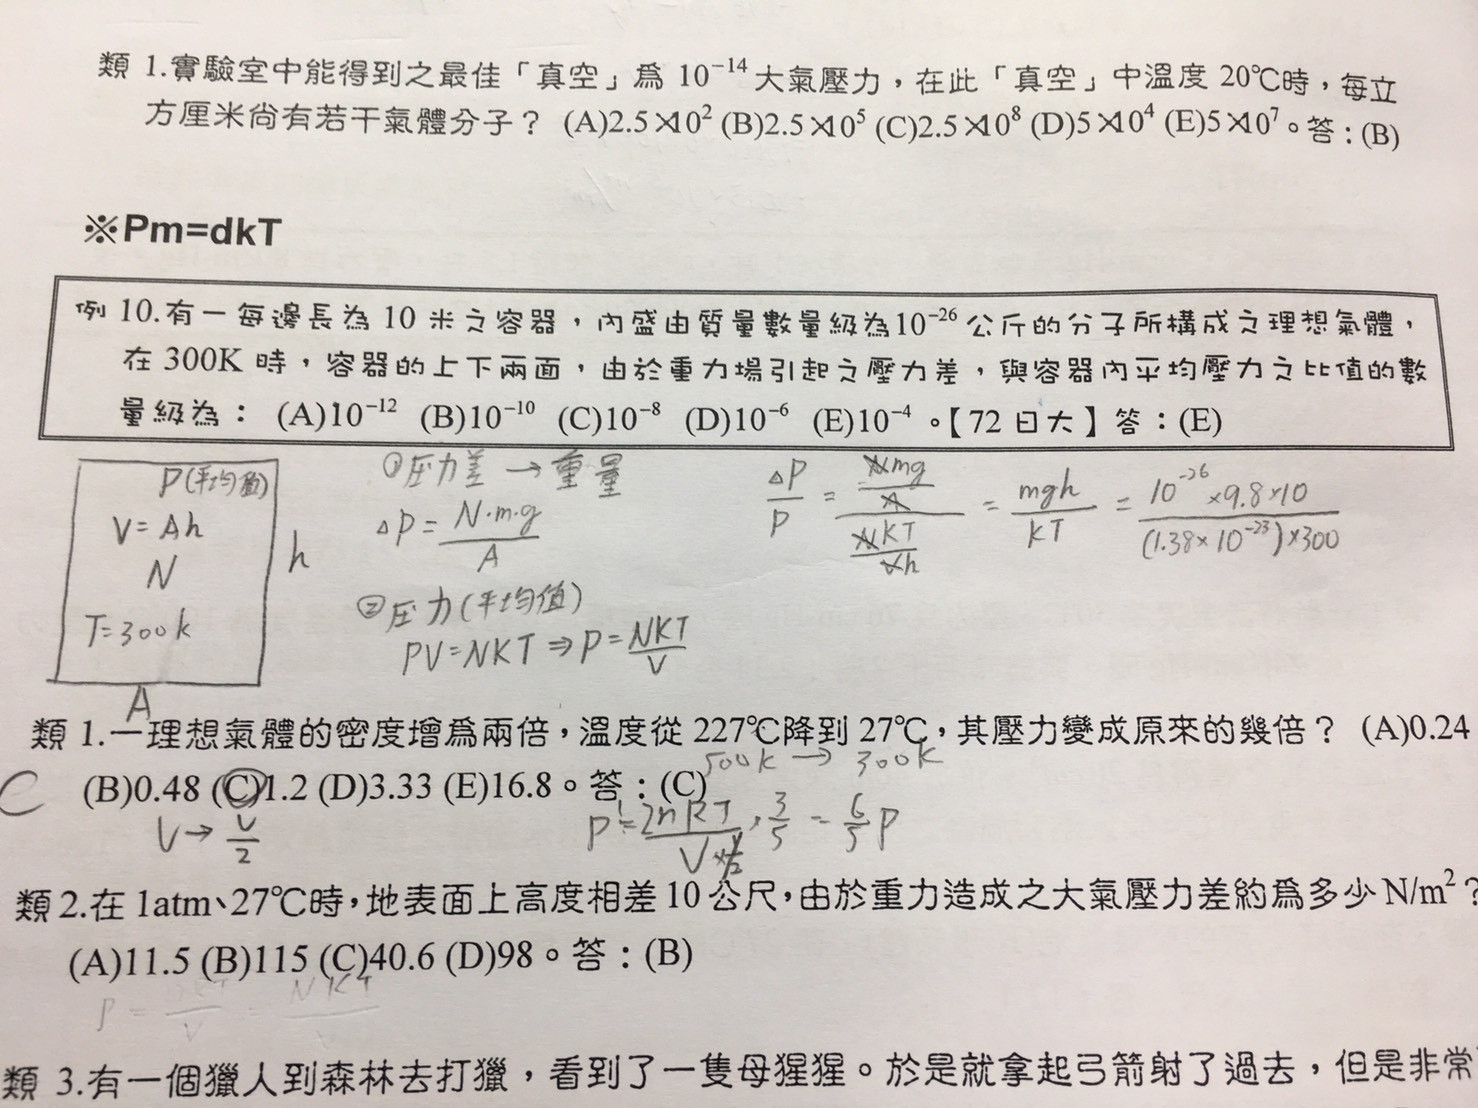 類 1.實驗室中能得到之最佳「真空」為 10⁻¹⁴ 大氣壓力，在此「真空」中溫度 20℃時，每立
方厘米尚有若干氣體分子？ (A)2.5×10² (B)2.5×10⁵ (C)2.5×10⁸ (D)5×10⁴ (E)5×10⁷。答：(B)
※Pm=dkT
例 10.有一每邊長為 10 米之容器，內盛由質量數量級為10⁻²⁶ 公斤的分子所構成之理想氣體，
在 300K 時，容器的上下兩面，由於重力場引起之壓力差，與容器內平均壓力之比值的數
量級為： (A)10⁻¹² (B)10⁻¹⁰ (C)10⁻⁸ (D)10⁻⁶ (E)10⁻⁴。【72 日大】答：(E)
P(平均值)
V=Ah
N
T=300k
h
A
①压力差 → 重量
△P= N·m·g / A
②压力(平均值)
PV=NKT ⇒ P= NKT / V
△P / P = (Nmg / A) / (NKT / Ah) = mgh / KT = 10⁻²⁶×9.8×10 / (1.38×10⁻²³)×300
類 1.一理想氣體的密度增為兩倍，溫度從 227℃降到 27℃，其壓力變成原來的幾倍？ (A)0.24
500k → 300k
C
(B)0.48 (C)1.2 (D)3.33 (E)16.8。答：(C)
V→ V / 2
類 2.在 1atm、27℃時，地表面上高度相差 10 公尺，由於重力造成之大氣壓力差約為多少 N/m²？
(A)11.5 (B)115 (C)40.6 (D)98。答：(B)
類 3.有一個獵人到森林去打獵，看到了一隻母猩猩。於是就拿起弓箭射了過去，但是非常